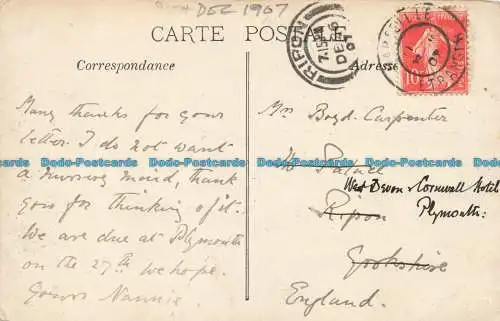 DEC 1907
CARTE POSTALE
Correspondance
Adresse
RIPON
7.15 PM
DE
07
MARSEILLE
10
Many thanks for your
letter. I do not want
a nursing maid, thank
you for thinking of it.
We are due at Plymouth
on the 27th we hope.
Yours Nannie
Mrs Boyd. Carpenter
The Palace
West Devon & Cornwall Hotel
Ripon
Plymouth.
Yorkshire
England.
Dodo-Postcards Dodo-Postcards Dodo-Postcards Dodo-Postcards Dodo-Postcards